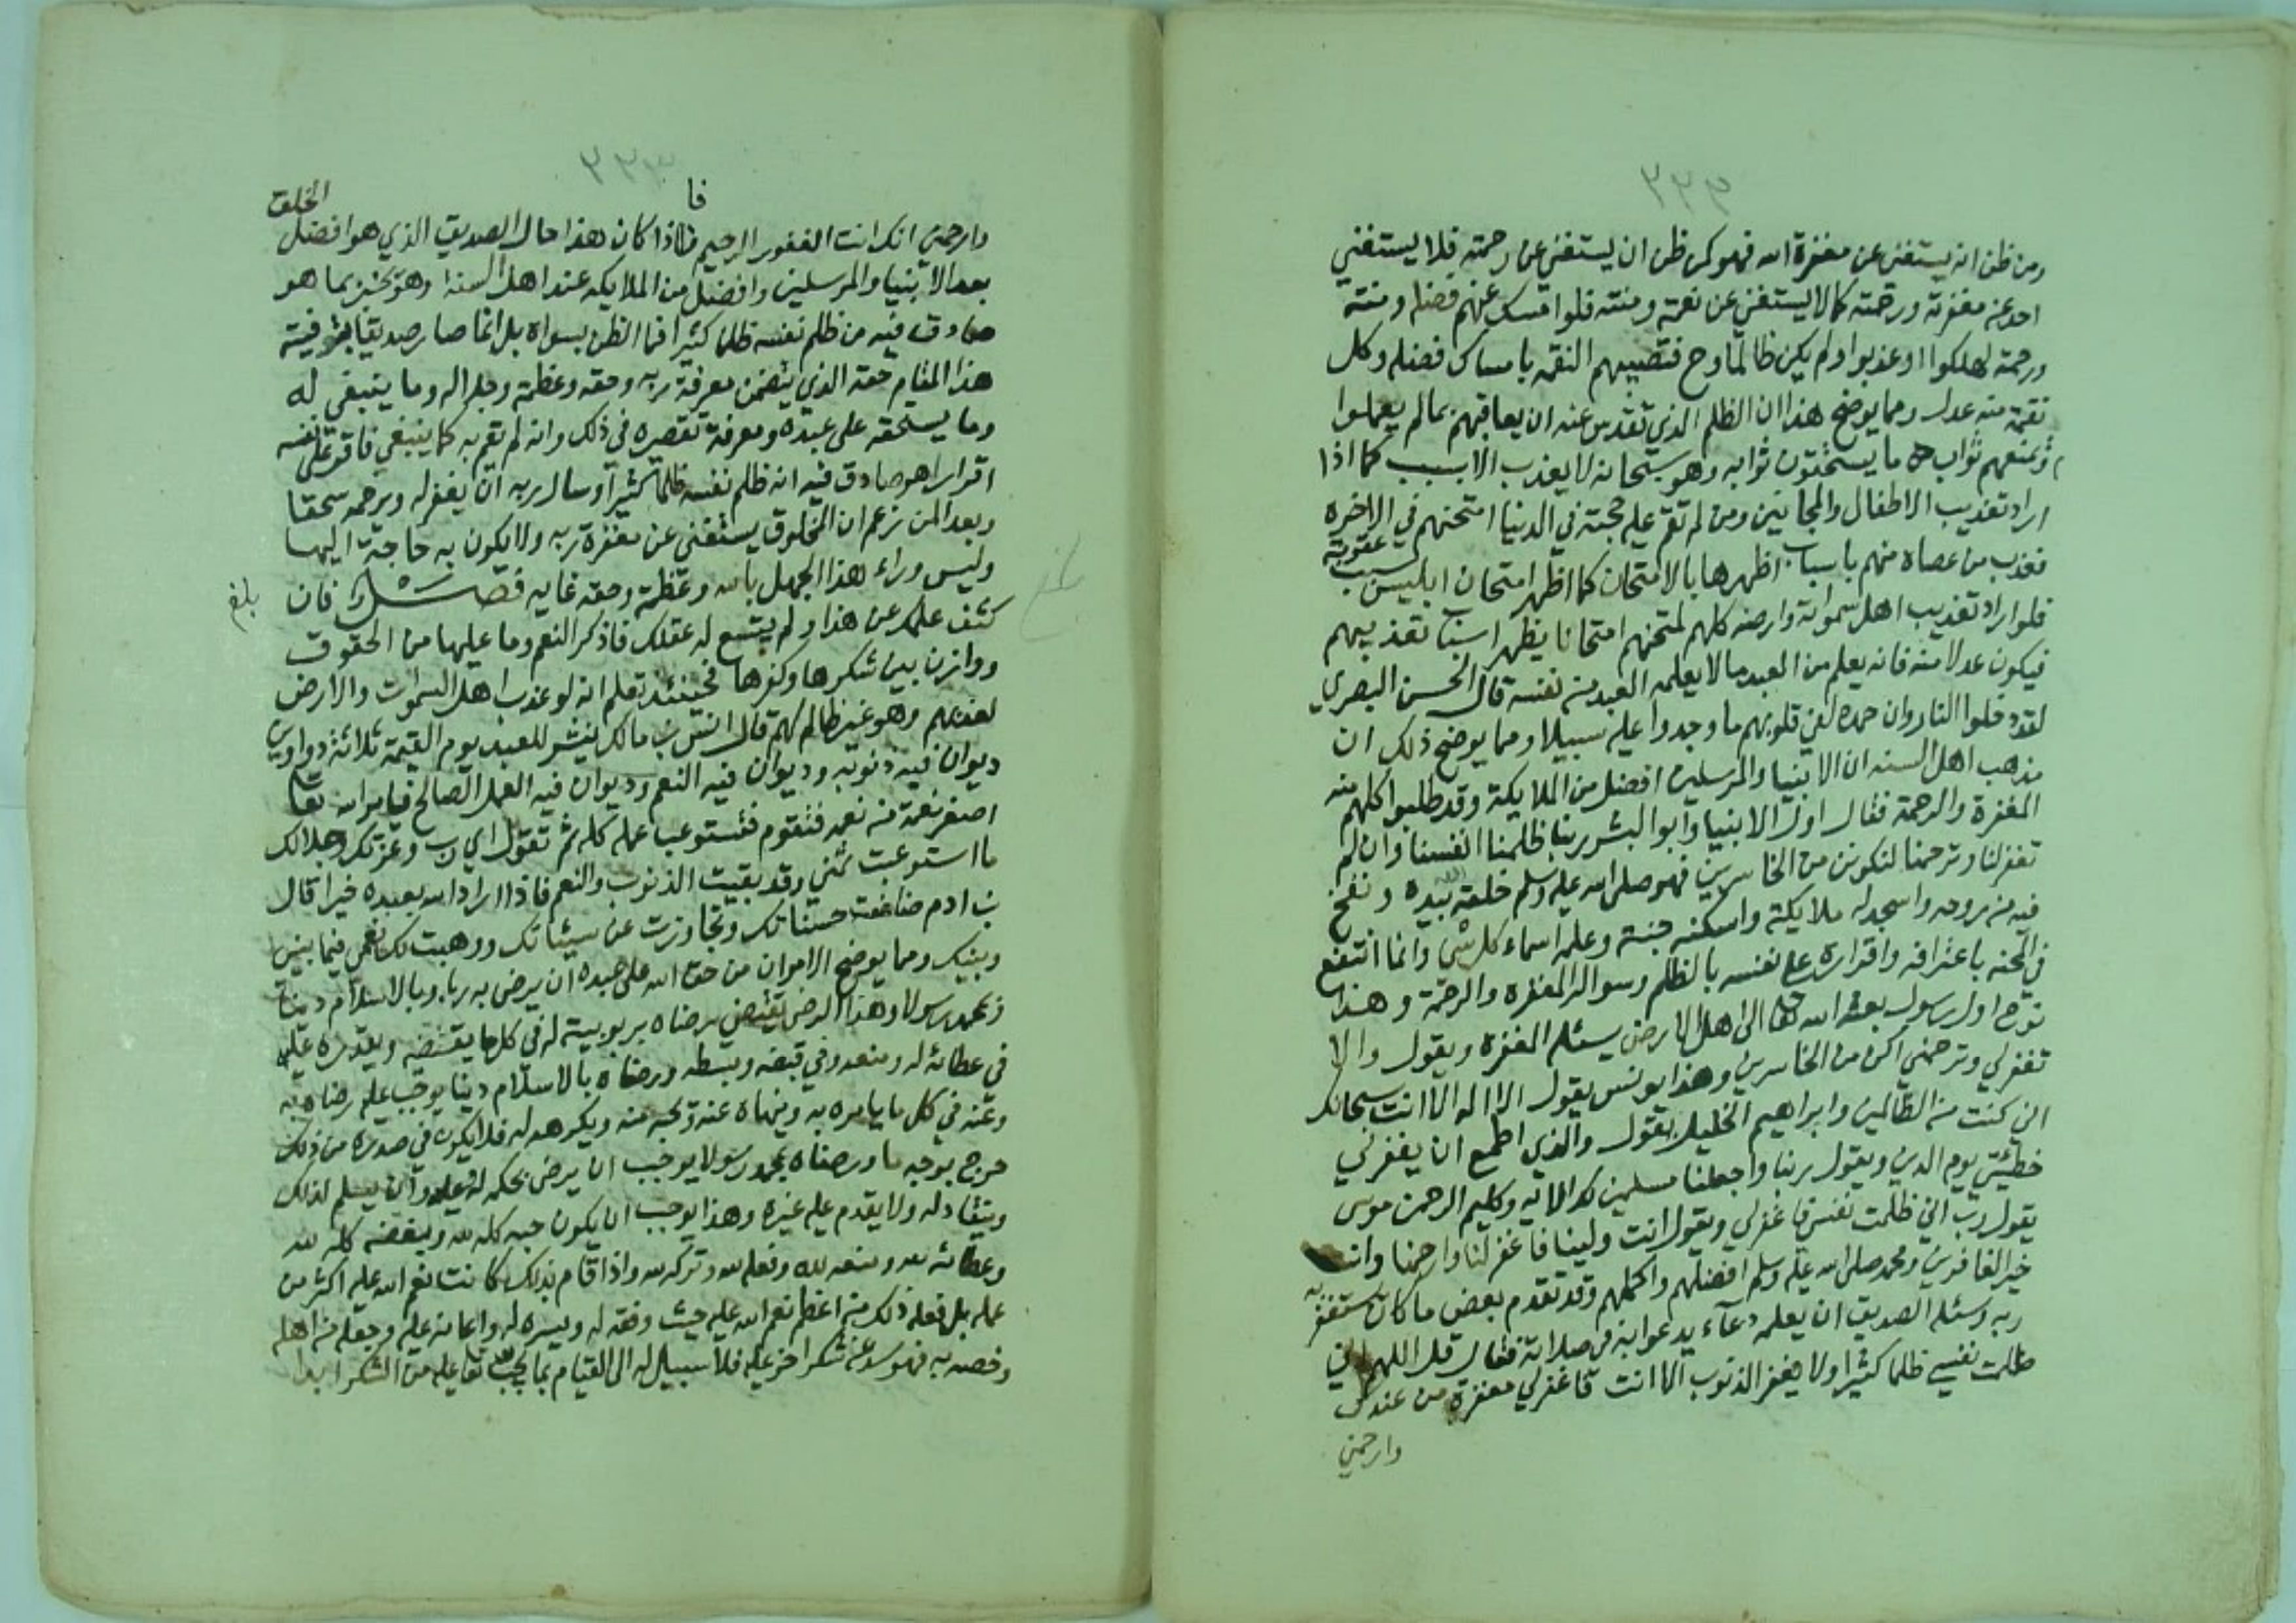 ومن ظن انه يستغني عن مغفرة الله فهو كمن ظن ان يستغني عن رحمته فلا يستغني
احد عن مغفرته ورحمته كما لا يستغني عن نعمته ومنته فلو امسك عنهم فضله ومنته
ورحمته لهلكوا او عذبوا ولم يكن ظالما وح فتصيبهم النقمة بامساك فضله وكل
نقمة منه عدل ومما يوضح هذا ان الظلم الذي تقدس عنه ان يعاقبهم بما لم يعملوا
ويمنعهم ثواب ما يستحقون ثوابه وهو سبحانه لا يعذب الا بسبب كما اذا
اراد تعذيب الاطفال والمجانين ومن لم تقم عليه حجته في الدنيا امتحنهم في الاخرة
فعذب من عصاه منهم باسباب اظهرها بالامتحان كما اظهر امتحان ابليس سبب عقوبته
فلو اراد تعذيب اهل سمواته وارضه كلهم لمتحنهم امتحانا يظهر اسباب تعذيبهم
فيكون عدلا منه فانه يعلم من العبد ما لا يعلمه العبد من نفسه قال الحسن البصري
لقد دخلوا النار وان حمده لفي قلوبهم ما وجدوا عليه سبيلا ومما يوضح ذلك ان
مذهب اهل السنه ان الانبيا والمرسلين افضل من الملايكة وقد طلبوا كلهم منه
المغفرة والرحمة فقال اول الانبيا وابوا البشر ربنا ظلمنا انفسنا وان لم
تغفر لنا وترحمنا لنكونن من الخاسرين فهو صلى الله عليه وسلم خلقه الله بيده ونفخ
فيه من روحه واسجد له ملايكته واسكنه جنته وعلمه اسماء كل شي وانما انتفع
في المحنه باعترافه واقراره على نفسه بالظلم وسواله المغفره والرحمة وهذا
نوح اول رسول بعثه الله تعالى الى اهل الارض يسئله المغفرة ويقول والا
تغفر لي وترحمني اكن من الخاسرين وهذا يونس يقول لا اله الا انت سبحانك
اني كنت من الظالمين وابراهيم الخليل يقول والذي اطمع ان يغفر لي
خطيئتي يوم الدين ويقول ربنا واجعلنا مسلمين لك الايه وكليم الرحمن موسى
يقول رب اني ظلمت نفسي فاغفر لي ويقول انت ولينا فاغفر لنا وارحمنا وانت
خير الغافرين ومحمد صلى الله عليه وسلم افضلهم واكملهم وقد تقدم بعض ما كان يستغفر به
ربه وسئله الصديق ان يعلمه دعاء يدعوا به في صلاته فقال قل اللهم اني
ظلمت نفسي ظلما كثيرا ولا يغفر الذنوب الا انت فاغفر لي مغفرة من عندك
وارحمني
وارحمني انك انت الغفور الرحيم فاذا كان هذا حال الصديق الذي هو افضل الخلق
بعد الانبيا والمرسلين وافضل من الملايكه عند اهل السنه وهو يخبر بما هو
صادق فيه من ظلم نفسه ظلما كثيرا فما الظن بسواه بل انما صار صديقا بتوفيته
هذا المقام حقه الذي يتضمن معرفة ربه وحقه وعظمته وجلاله وما ينبغي له
وما يستحقه على عبده ومعرفة تقصيره في ذلك وانه لم يقم به كما ينبغي فاقر على نفسه
اقرارا هو صادق فيه انه ظلم نفسه ظلما كثيرا وسال ربه ان يغفر له ويرحمه سحقا
وبعدا لمن زعم ان المخلوق يستغني عن مغفرة ربه ولا يكون به حاجة اليها
وليس وراء هذا الجهل بالله وعظمته وحقه غايه فصل فان
بلغ
كثف علمك عن هذا ولم يتسع له عقلك فاذكر النعم وما عليها من الحقوق
ووازن بين شكرها وكفرها فحينئذ تعلم انه لو عذب اهل السموات والارض
لعذبهم وهو غير ظالم لهم قال انس بن مالك ينشر للعبد يوم القيمة ثلاثة دواوين
ديوان فيه ذنوبه وديوان فيه النعم وديوان فيه العمل الصالح فيامر الله تعالى
اصغر نعمة من نعمه فتقوم فتستوعب عمله كله ثم تقول اي رب وعزتك وجلالك
ما استوعبت ثمني وقد بقيت الذنوب والنعم فاذا اراد الله بعبده خيرا قال
بن ادم ضاعفت حسناتك وتجاوزت عن سيئاتك ووهبت لك نعمي فيما بيني
وبينك ومما يوضح الامر ان من حق الله على عبده ان يرضى به ربا وبالاسلام دينا
وبمحمد رسولا وهذا الرضى يقتضي رضاه بربوبيته له في كل ما يقتضيه ويقدره عليه
في عطائه له ومنعه وفي قبضه وبسطه ورضاه بالاسلام دينا يوجب عليه رضاه به
وعنه في كل ما يامره به وينهاه عنه ويحبه منه ويكرهه له فلا يكون في صدره من ذلك
حرج بوجه ما ورضاه بمحمد رسولا يوجب ان يرضى بحكمه له وعليه وان يسلم لذلك
وينقاد له ولا يقدم عليه غيره وهذا يوجب ان يكون حبه كله لله وبغضه كله لله
وعطائه لله ومنعه لله وفعله لله وتركه لله واذا قام بذلك كانت نعم الله عليه اكثر من
عمله بل فعله ذلك من اعظم نعم الله عليه حيث وفقه له ويسره له واعانه عليه وجعله من اهله
وخصه به فهو يستدعي شكرا اخر عليه فلا سبيل له الى القيام بما يجب لله تعالى عليه من الشكر ابدا